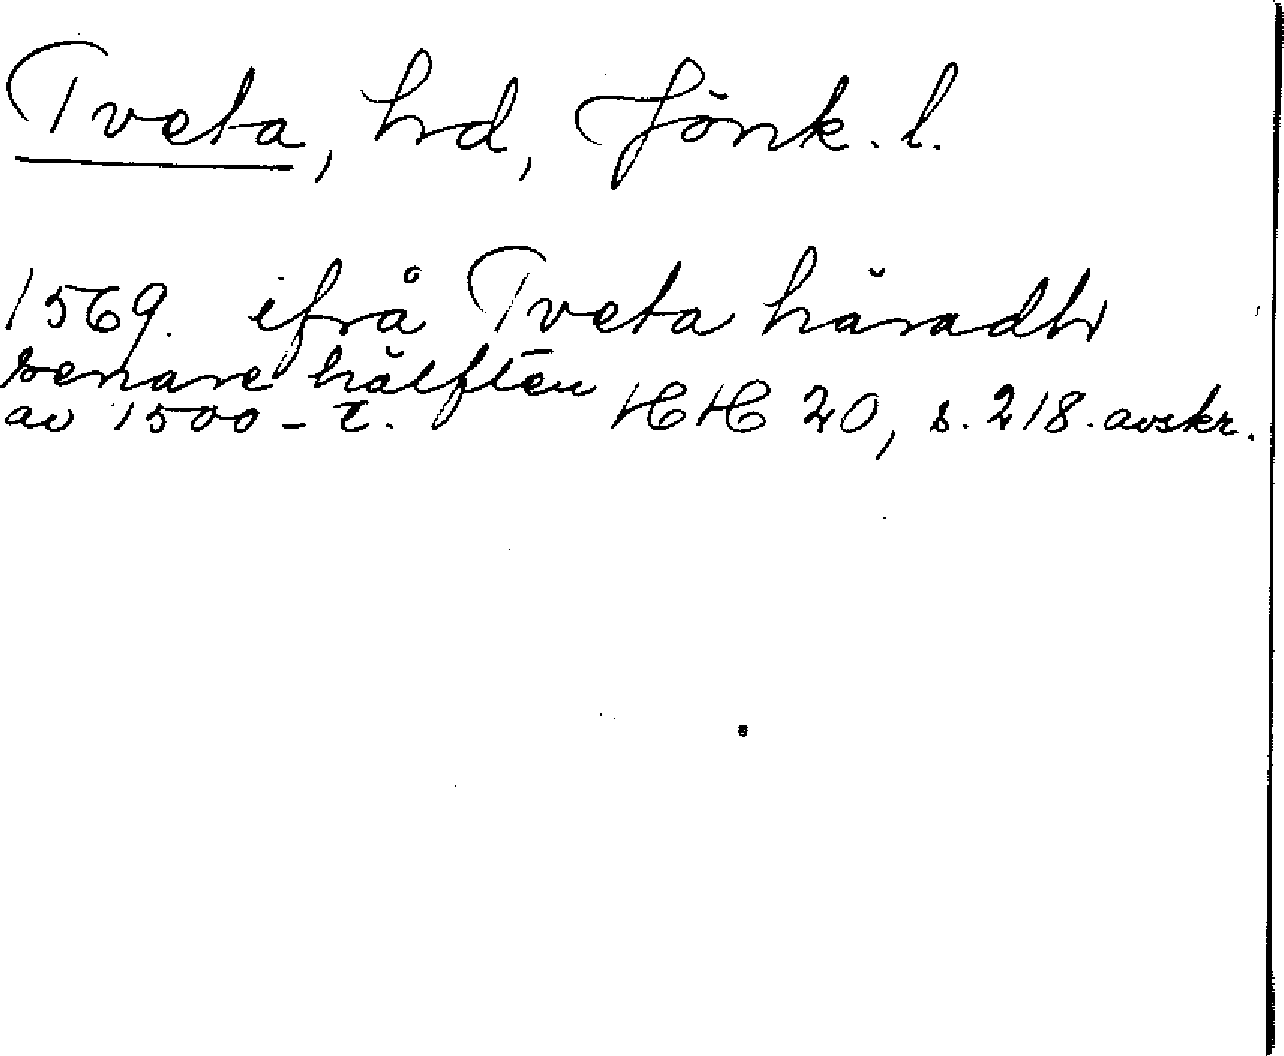 Tveta, hd, Jönk. l.
1569. ifrå Tveta häradh
senare hälften
av 1500-t. HH 20, s. 218. avskr.